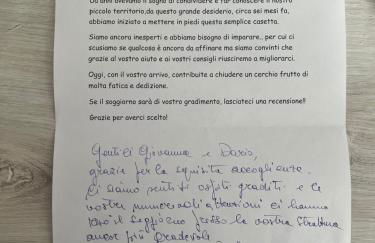 Da anni avevamo il sogno di condividere e far conoscere il nostro
piccolo territorio,da questo grande desiderio, circa sei mesi fa,
abbiamo iniziato a mettere in piedi questa semplice casetta.
Siamo ancora inesperti e abbiamo bisogno di imparare.. per cui ci
scusiamo se qualcosa è ancora da affinare ma siamo convinti che
grazie al vostro aiuto e ai vostri consigli riusciremo a migliorarci.
Oggi, con il vostro arrivo, contribuite a chiudere un cerchio frutto di
molta fatica e dedizione.
Se il soggiorno sarà di vostro gradimento, lasciateci una recensione!!
Grazie per averci scelto!
Gentili Giovanna e Dario,
grazie per la squisita accoglienza.
Ci siamo sentiti ospiti graditi e le
vostre innumerevoli attenzioni ci hanno
reso il soggiorno presso la vostra struttura
ancor più gradevole